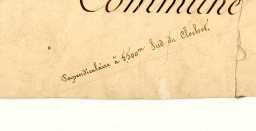 Commune
Perpendiculaire à 4500m Sud du Clocher.